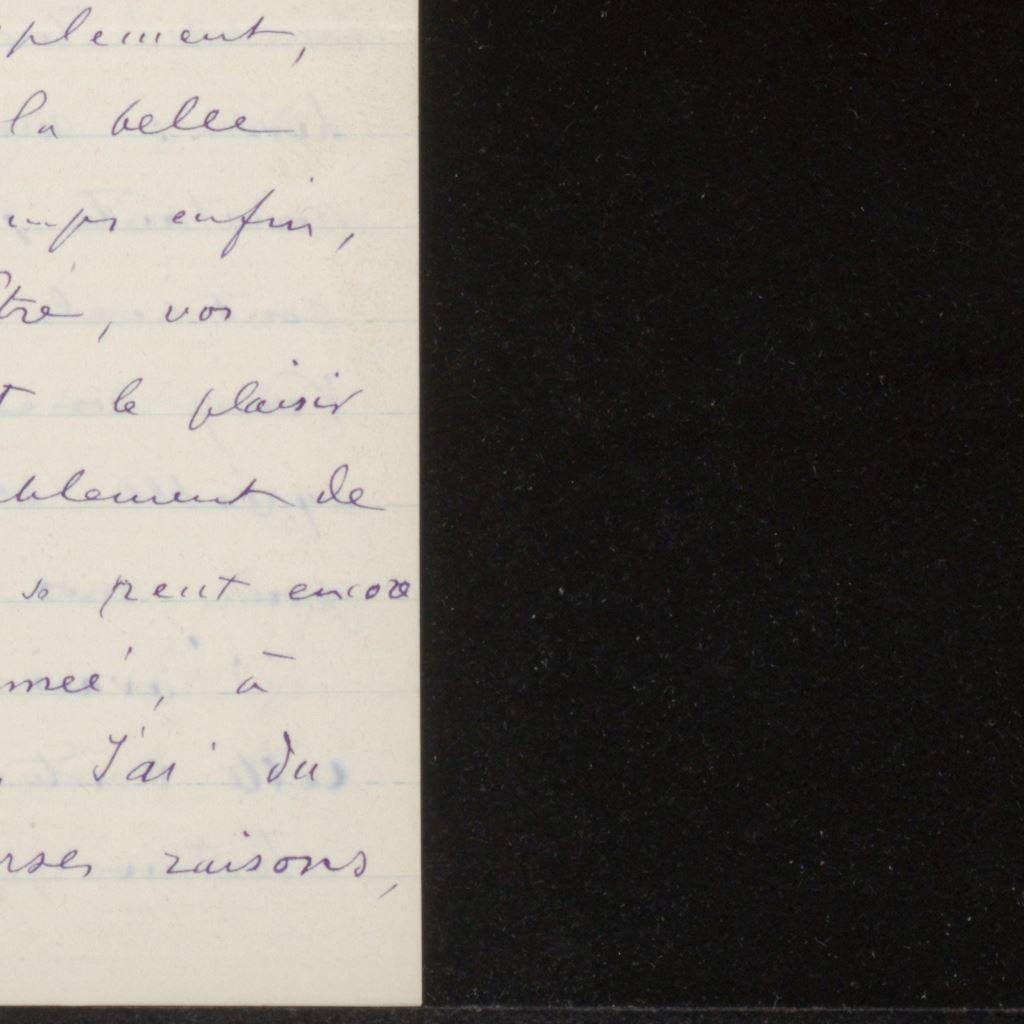 plement,
la belle
mps enfin,
être, vos
t le plaisir
blement de
se peut encore
mée, à
J'ai du
rses raisons,